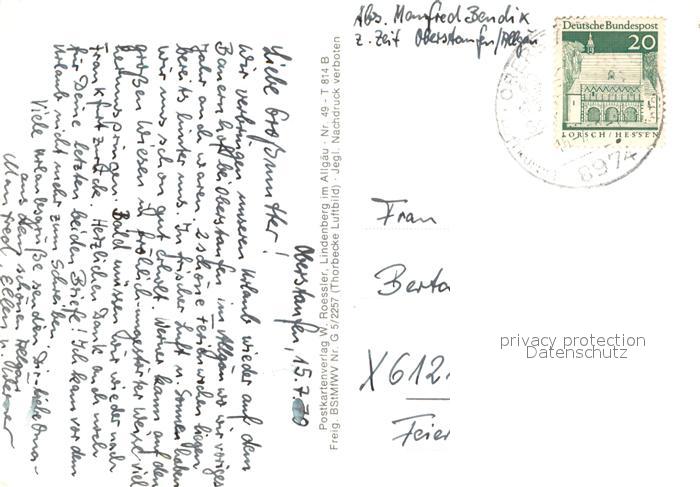 Oberstaufen, 15.7.70
Liebe Großmutter!
Wir verbringen unseren Urlaub wieder auf dem
Bauernhof bei Oberstaufen im Allgäu wo wir voriges
Jahr auch waren. 2 schöne Ferienwochen liegen
bereits hinter uns. In frischer Luft u. Sonne haben
wir uns schon gut erholt. Werner kann auf den
großen Wiesen in fröhlich ungestörter Weise viel
herumspringen. Bald müssen wir wieder nach
Frankfurt zurück. Herzlichen Dank auch noch
für Deine letzten beiden Briefe! Ich kam vor dem
Urlaub nicht mehr zum Schreiben.
Viele Urlaubsgrüße senden Dir liebe Oma
aus dem schönen Allgäu
Manfred, Ellen u. Werner
Postkartenverlag W. Roessler, Lindenberg im Allgäu · Nr. 49 - T 814 B
Freig. BStMfWV Nr. G 5/2257 (Thorbecke Luftbild) · Jegl. Nachdruck verboten
Abs. Manfred Bendik
z. Zeit Oberstaufen/Allgäu
Deutsche Bundespost
20
LORSCH/HESSEN
8974
Frau
Berta
X612
Feier
privacy protection
Datenschutz